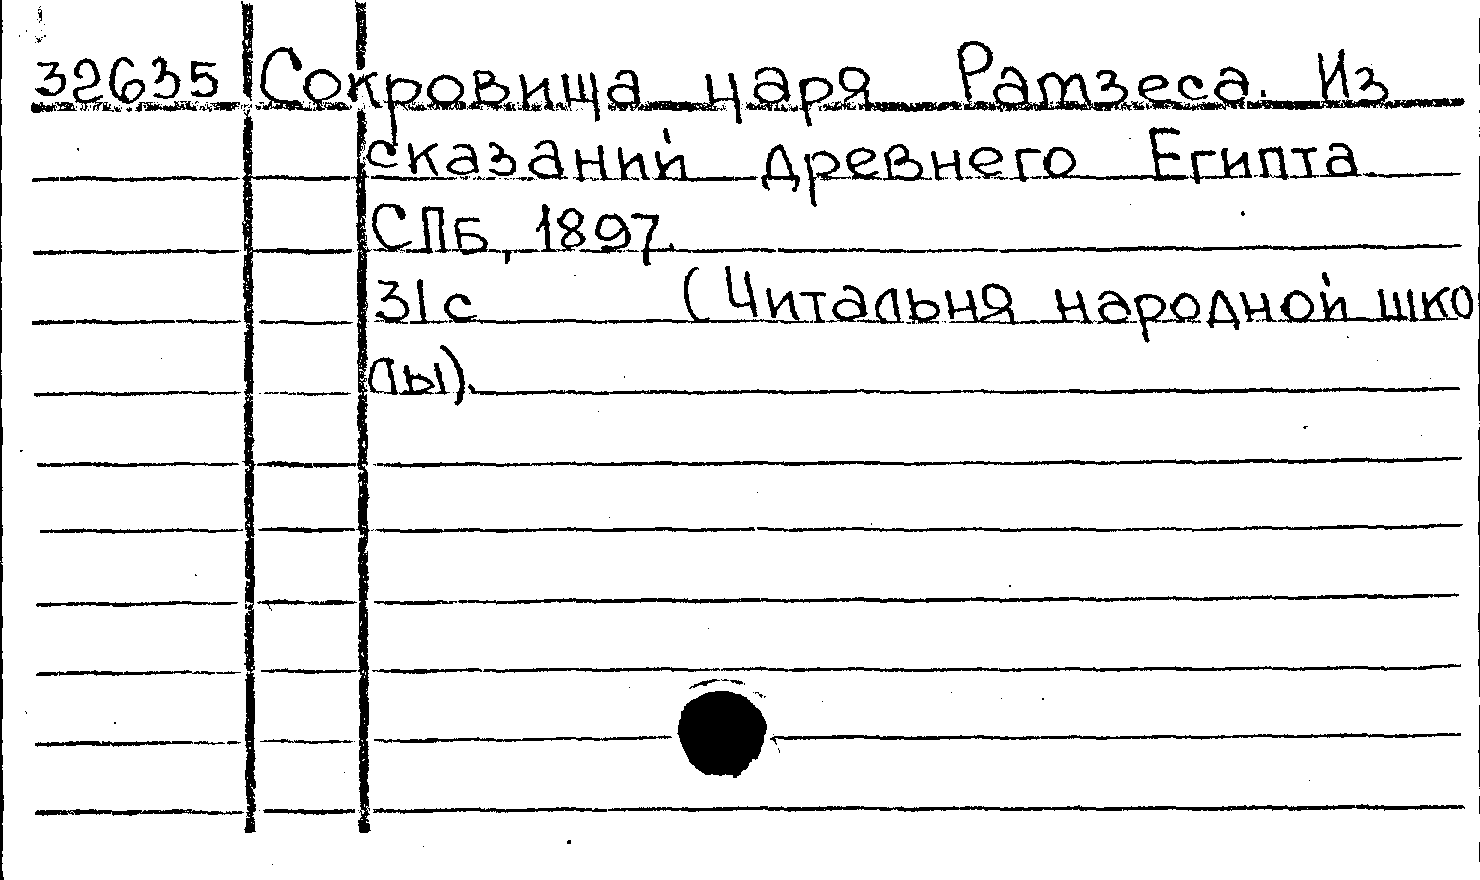 32635 Сокровища царя Рамзеса. Из
сказаний древнего Египта.
СПБ, 1897.
31с (Читальня народной шко
лы).